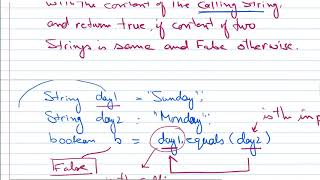 with the content of the Calling String,
and return true, if content of two
Strings is same and False otherwise.
String day1 = "Sunday";
String day2 = "Monday";
is the inp
boolean b = day1.equals(day2)
False